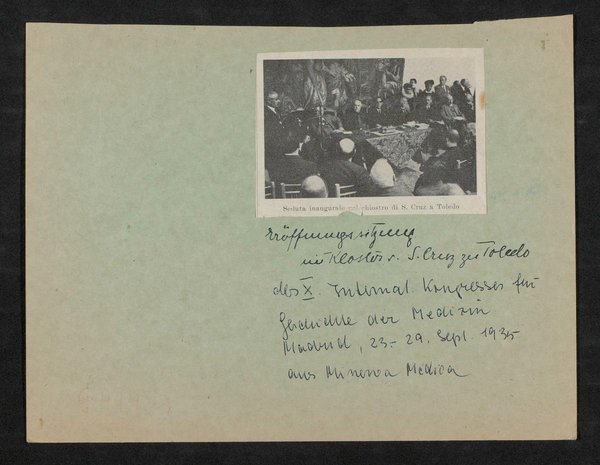 Seduta inaugurale nel chiostro di S. Cruz a Toledo
Eröffnungssitzung
im Kloster v. S. Cruz zu Toledo
des X. Internat. Kongresses für
Geschichte der Medizin
Madrid, 23.-29. Sept. 1935
aus Minerva Medica